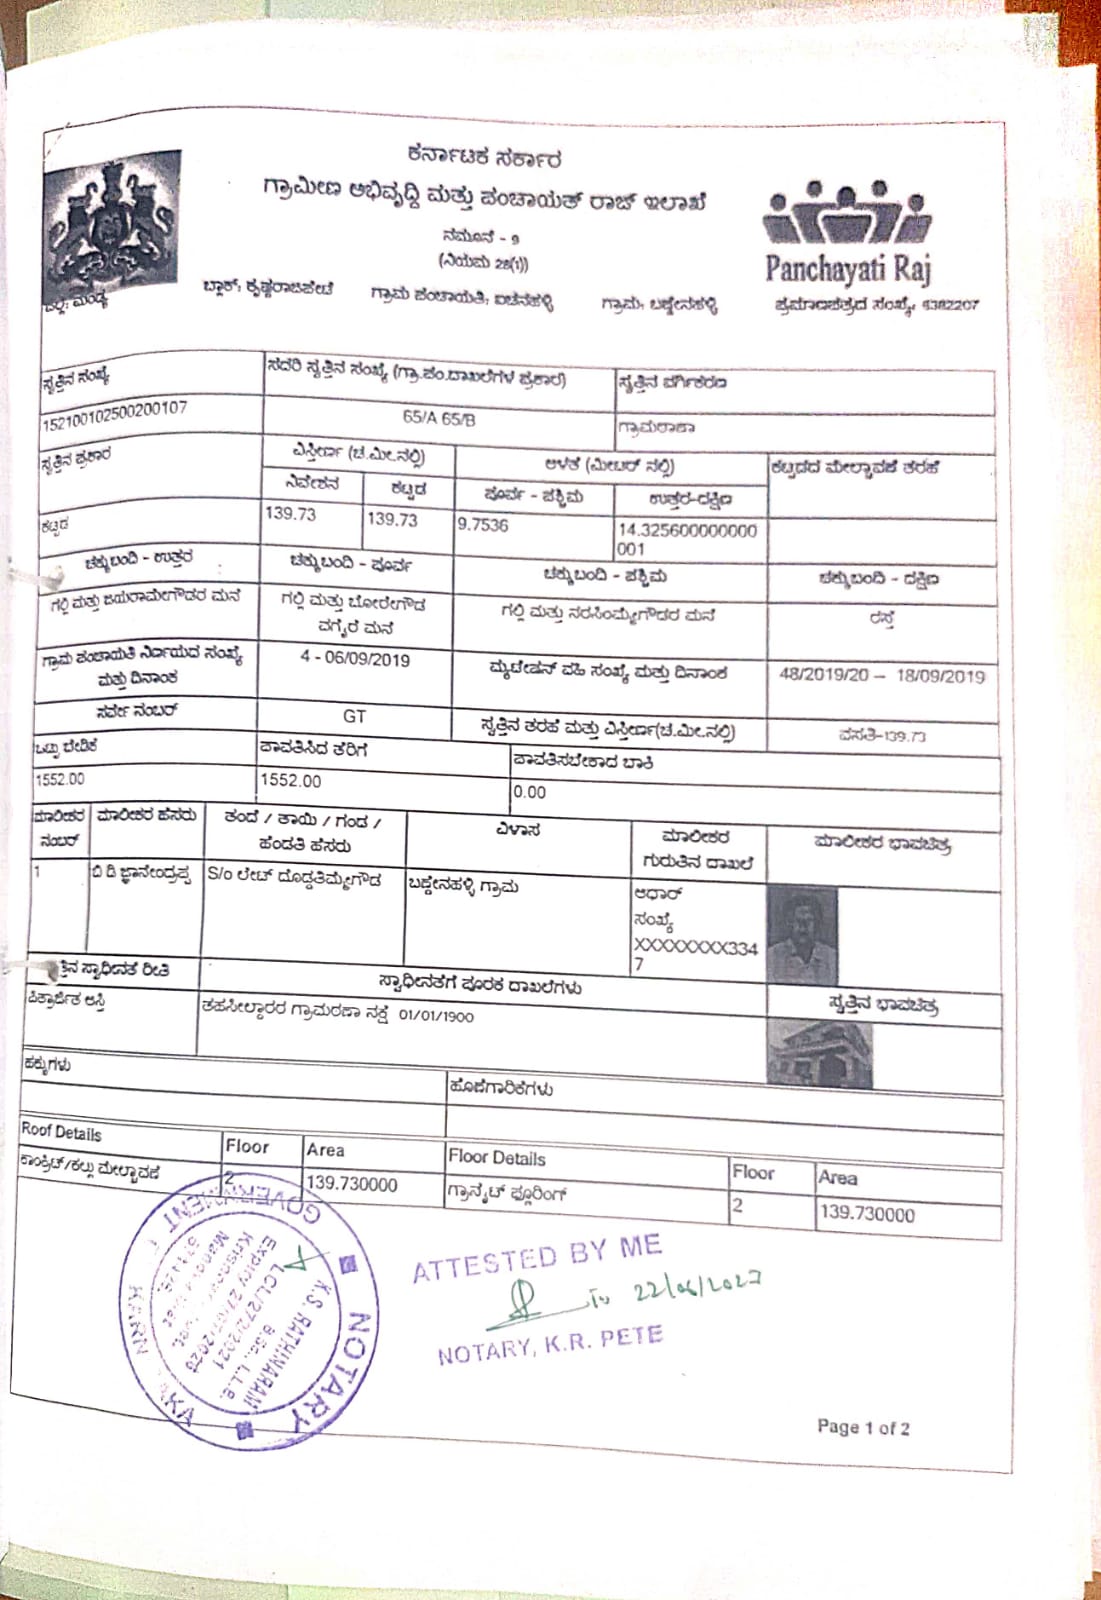 ಕರ್ನಾಟಕ ಸರ್ಕಾರ
ಗ್ರಾಮೀಣ ಅಭಿವೃದ್ಧಿ ಮತ್ತು ಪಂಚಾಯತ್ ರಾಜ್ ಇಲಾಖೆ
ನಮೂನೆ - 9
(ನಿಯಮ 28(1))
Panchayati Raj
ಜಿಲ್ಲೆ: ಮಂಡ್ಯ ಬ್ಲಾಕ್: ಕೃಷ್ಣರಾಜಪೇಟೆ ಗ್ರಾಮ ಪಂಚಾಯತಿ: ಐಚನಹಳ್ಳಿ ಗ್ರಾಮ: ಬಣ್ಣೇನಹಳ್ಳಿ ಪ್ರಮಾಣಪತ್ರದ ಸಂಖ್ಯೆ: 6382207
ಸ್ವತ್ತಿನ ಸಂಖ್ಯೆ ಸದರಿ ಸ್ವತ್ತಿನ ಸಂಖ್ಯೆ (ಗ್ರಾ.ಪಂ.ದಾಖಲೆಗಳ ಪ್ರಕಾರ) ಸ್ವತ್ತಿನ ವರ್ಗೀಕರಣ
152100102500200107 65/A 65/B ಗ್ರಾಮಠಾಣಾ
ಸ್ವತ್ತಿನ ಪ್ರಕಾರ ವಿಸ್ತೀರ್ಣ (ಚ.ಮೀ.ನಲ್ಲಿ) ಅಳತೆ (ಮೀಟರ್ ನಲ್ಲಿ) ಕಟ್ಟಡದ ಮೇಲ್ಚಾವಣಿ ತರಹೆ
ನಿವೇಶನ ಕಟ್ಟಡ ಪೂರ್ವ - ಪಶ್ಚಿಮ ಉತ್ತರ-ದಕ್ಷಿಣ
ಕಟ್ಟಡ 139.73 139.73 9.7536 14.325600000000
001
ಚಕ್ಕುಬಂದಿ - ಉತ್ತರ ಚಕ್ಕುಬಂದಿ - ಪೂರ್ವ ಚಕ್ಕುಬಂದಿ - ಪಶ್ಚಿಮ ಚಕ್ಕುಬಂದಿ - ದಕ್ಷಿಣ
ಗಲ್ಲಿ ಮತ್ತು ಜಯರಾಮೇಗೌಡರ ಮನೆ ಗಲ್ಲಿ ಮತ್ತು ಬೋರೇಗೌಡ ಗಲ್ಲಿ ಮತ್ತು ನರಸಿಂಮ್ಮೇಗೌಡರ ಮನೆ ರಸ್ತೆ
ವಗೈರೆ ಮನೆ
ಗ್ರಾಮ ಪಂಚಾಯತಿ ನಿರ್ಣಯದ ಸಂಖ್ಯೆ 4 - 06/09/2019 ಮ್ಯುಟೇಷನ್ ವಹಿ ಸಂಖ್ಯೆ ಮತ್ತು ದಿನಾಂಕ 48/2019/20 – 18/09/2019
ಮತ್ತು ದಿನಾಂಕ
ಸರ್ವೆ ನಂಬರ್ GT ಸ್ವತ್ತಿನ ತರಹೆ ಮತ್ತು ವಿಸ್ತೀರ್ಣ(ಚ.ಮೀ.ನಲ್ಲಿ) ವಸತಿ-139.73
ಒಟ್ಟು ಬೇಡಿಕೆ ಪಾವತಿಸಿದ ತೆರಿಗೆ ಪಾವತಿಸಬೇಕಾದ ಬಾಕಿ
1552.00 1552.00 0.00
ಮಾಲೀಕರ ಮಾಲೀಕರ ಹೆಸರು ತಂದೆ / ತಾಯಿ / ಗಂಡ / ವಿಳಾಸ ಮಾಲೀಕರ ಮಾಲೀಕರ ಭಾವಚಿತ್ರ
ನಂಬರ್ ಹೆಂಡತಿ ಹೆಸರು ಗುರುತಿನ ದಾಖಲೆ
1 ಬಿ ಡಿ ಜ್ಞಾನೇಂದ್ರಪ್ಪ S/o ಲೇಟ್ ದೊಡ್ಡತಿಮ್ಮೇಗೌಡ ಬಣ್ಣೇನಹಳ್ಳಿ ಗ್ರಾಮ ಆಧಾರ್
ಸಂಖ್ಯೆ
XXXXXXXX334
7
ಸ್ವಾಧೀನತೆ ರೀತಿ ಸ್ವಾಧೀನತೆಗೆ ಪೂರಕ ದಾಖಲೆಗಳು ಸ್ವತ್ತಿನ ಭಾವಚಿತ್ರ
ಪಿತ್ರಾರ್ಜಿತ ಆಸ್ತಿ ತಹಸೀಲ್ದಾರರ ಗ್ರಾಮಠಾಣಾ ನಕ್ಷೆ 01/01/1900
ಹಕ್ಕುಗಳು ಹೊಣೆಗಾರಿಕೆಗಳು
Roof Details Floor Area Floor Details Floor Area
ಕಾಂಕ್ರಿಟ್/ಕಲ್ಲು ಮೇಲ್ಚಾವಣಿ 2 139.730000 ಗ್ರಾನೈಟ್ ಫ್ಲೂರಿಂಗ್ 2 139.730000
ATTESTED BY ME
22/06/2023
NOTARY, K.R. PETE
NOTARY
GOVERNMENT
K.S. RATHNARAM
B.Sc., L.L.B.
LCL/272/2021
Expiry 27/07/2026
Page 1 of 2